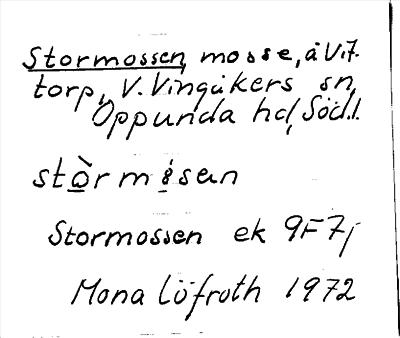 Stormossen, mosse, å Vi.7.
torp, V. Vingåkers sn,
Oppunda hd, Söd.l.
stòrmåsan
Stormossen ek 9F7j
Mona Löfroth 1972